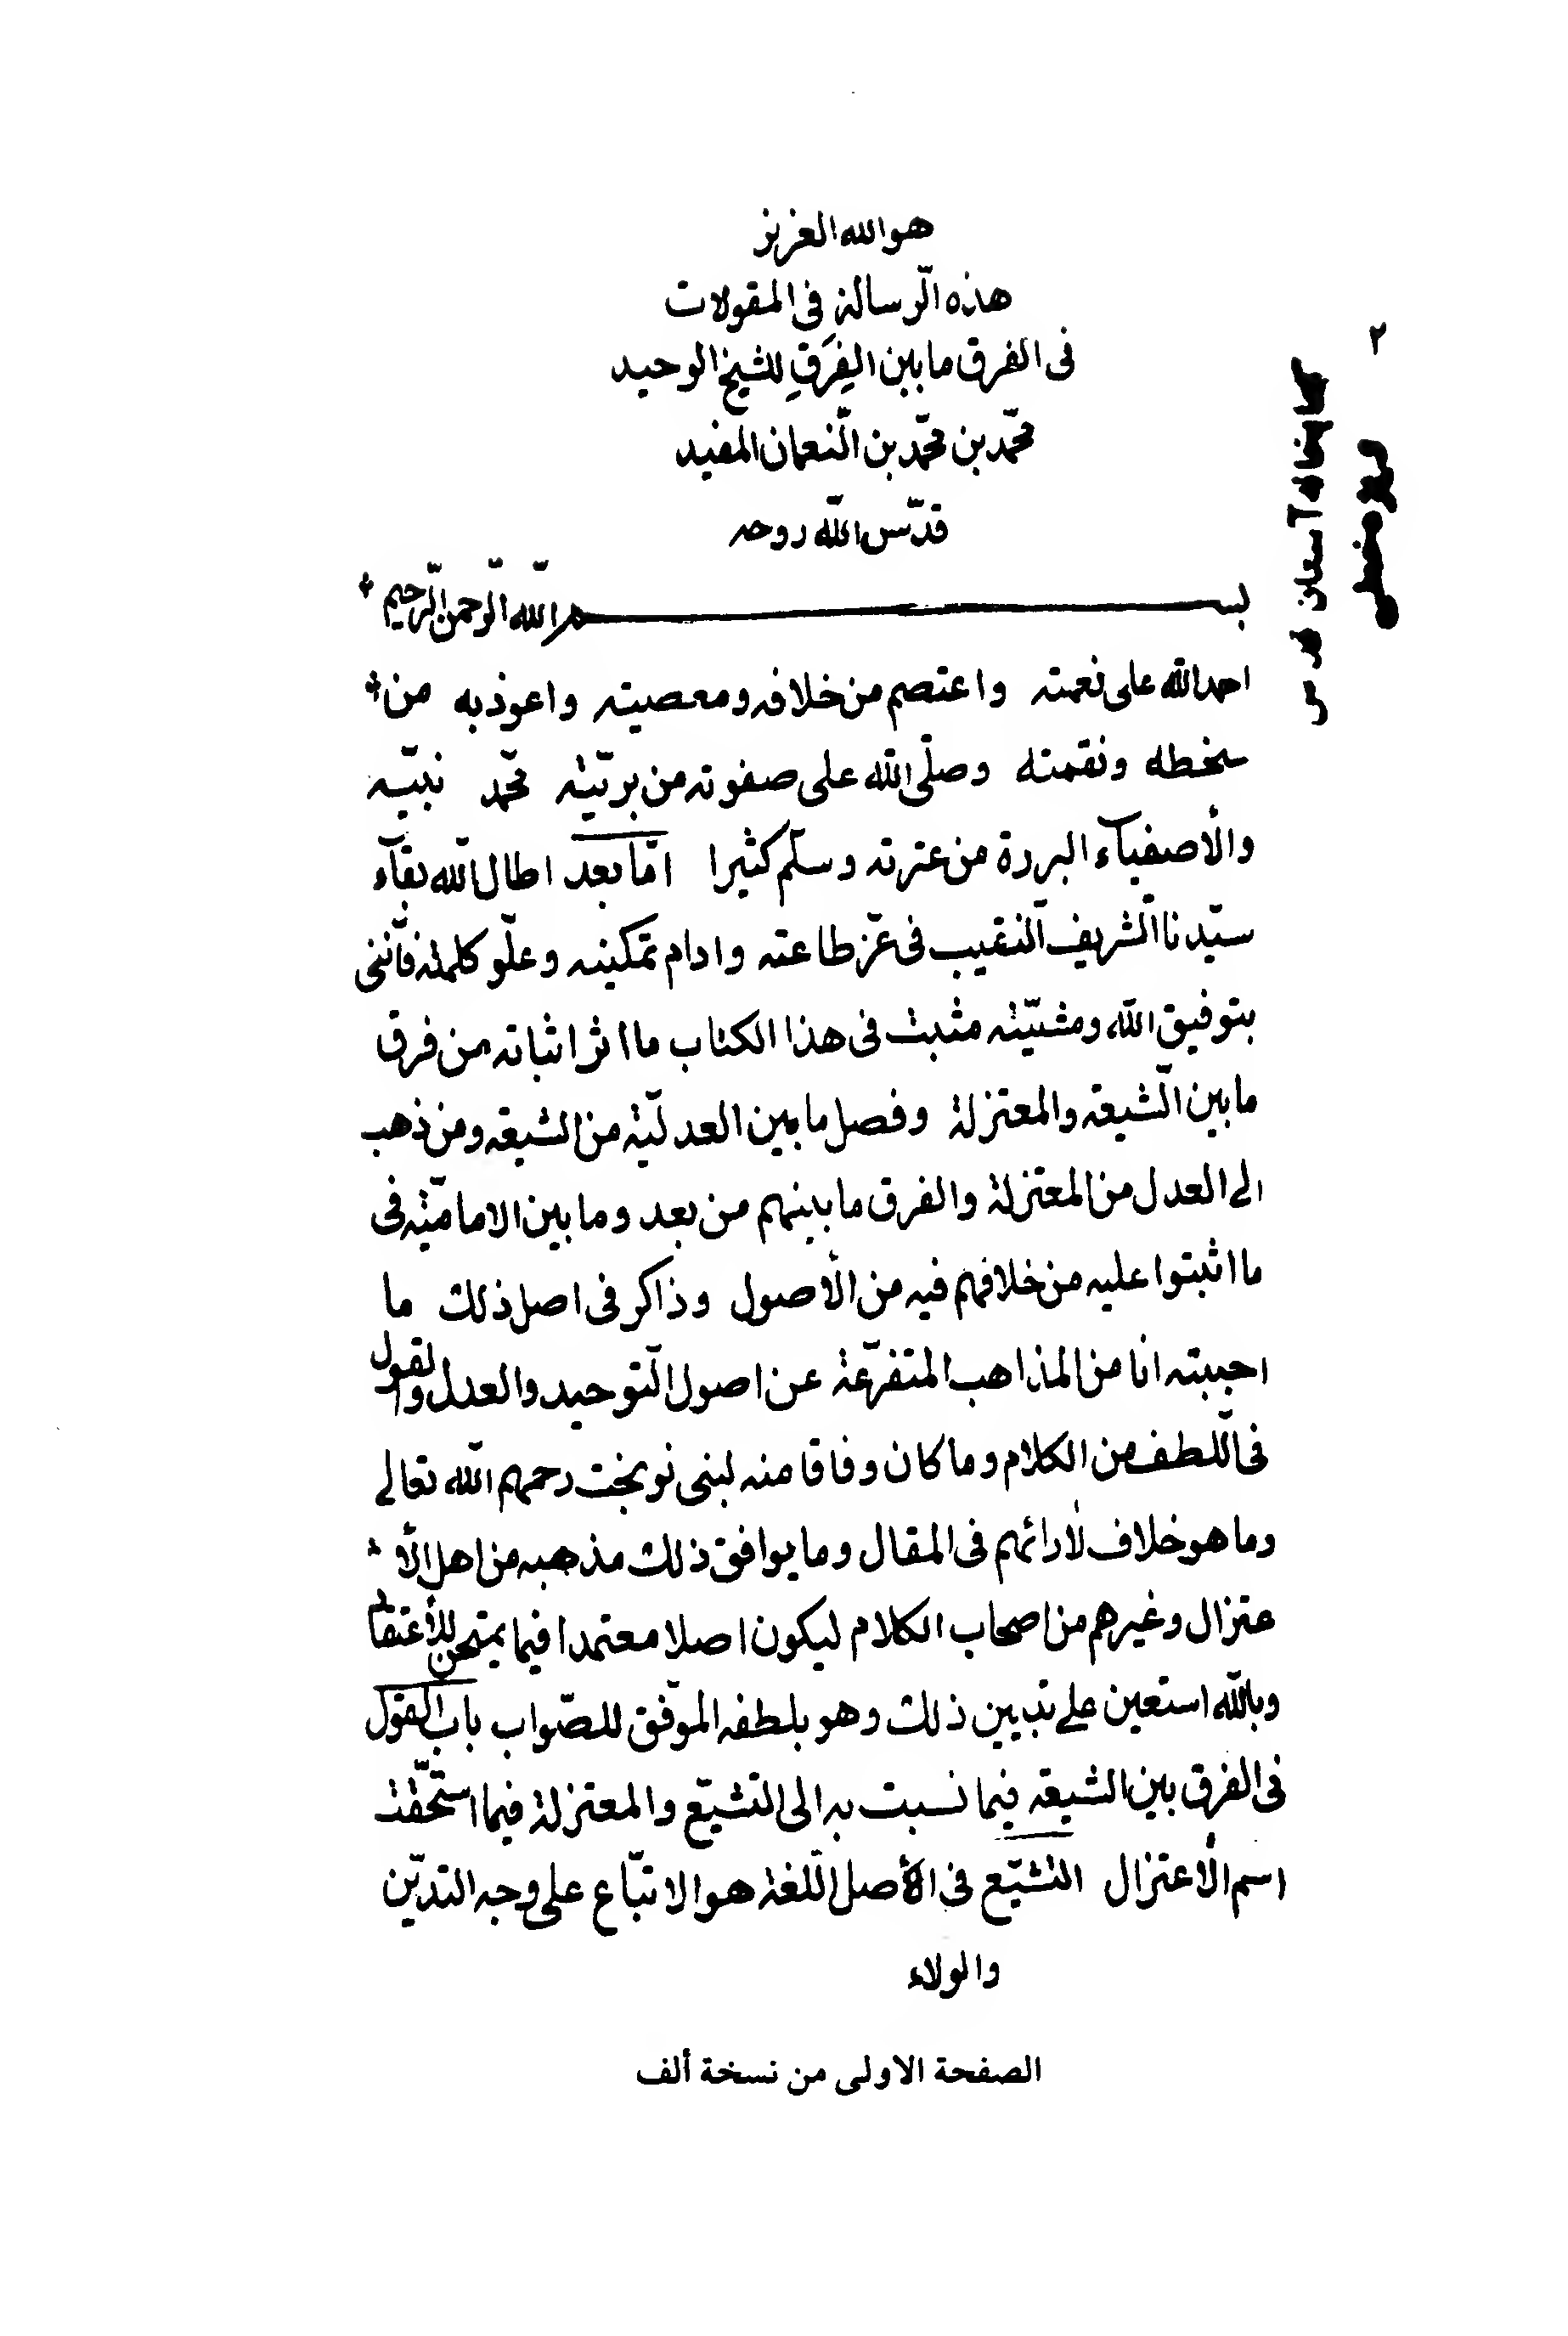 هو الله العزيز
هذه الرّسالة في المقولات
فى الفرق ما بين الفِرَقِ للشيخ الوحيد
محمّد بن محمّد بن النّعمان المفيد
قدّس اللّه روحه
٢
كتابخانه آستان قدس
بسم اللّه الرّحمن الرّحيم
احمد الله على نعمته واعتصم من خلافه ومعصيته واعوذ به من
سخطه ونقمته وصلّى اللّه على صفوته من بريّته محمّد نبيّه
والأصفيآء البررة من عترته وسلّم كثيرا امّا بعد اطال اللّه بقآء
سيّدنا الشّريف النّقيب فى عزّ طاعته وادام تمكينه وعلّو كلمته فانّنى
بتوفيق اللّه ومشيّته مثبت فى هذا الكتاب ما اثر اثباته من فرق
ما بين الشّيعه والمعتزلة وفصل ما بين العدليّة من الشيعه ومن ذهب
الى العدل من المعتزلة والفرق ما بينهم من بعد وما بين الاماميّة فى
ما اثبتوا عليه من خلافهم فيه من الأصول وذاكر فى اصل ذلك ما
اجبيته انا من المذاهب المتفرّعة عن اصول التّوحيد والعدل والقول
فى اللّطف من الكلام وما كان وفاقا منه لبنى نوبخت رحمهم اللّه تعالى
وما هو خلاف لارائهم فى المقال وما يوافق ذلك مذهبه من اهل الأ
عتزال وغيرهم من اصحاب الكلام ليكون اصلا معتمدا فيما يمتحن للأعتقاد
وباللّه استعين على تبيين ذلك وهو بلطفه الموّفق للصّواب باب القول
فى الفرق بين الشيعه فيما نسبت به الى التشيّع والمعتزلة فيما استحقّت
اسم الأعتزال التشيّع فى الأصل اللّغة هو الاتبّاع على وجه التديّن
والولاء
الصفحة الاولى من نسخة ألف